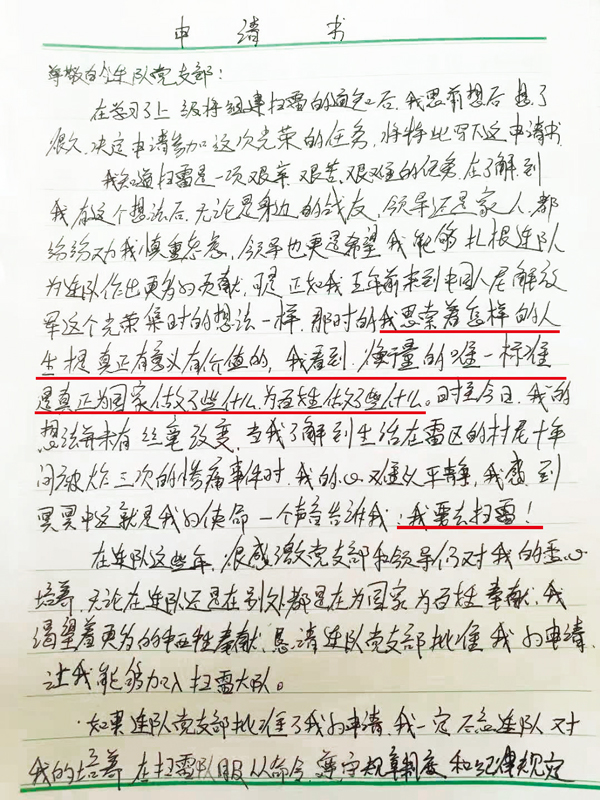 申请书
尊敬的连队党支部：
在学习了上级将组建扫雷的通知后，我思前想后 想了
很久，决定申请参加这次光荣的任务，特将此写下这申请书
我知道扫雷是一项艰辛、艰苦、艰难的任务，在了解到
我有这个想法后，无论是身边的战友，领导还是家人，都
纷纷劝我慎重考虑，领导也更是希望我能够扎根连队
为连队作出更多的贡献，可是正如我五年前来到中国人民解放
军这个光荣集体时的想法一样，那时的我思索着怎样的人
生是真正有意义有价值的，我看到，衡量的唯一标准
是真正为国家做了些什么，为百姓做了些什么。时至今日，我的
想法并未有丝毫改变，当我了解到生活在雷区的村民十年
间被炸三次的惨痛事件时，我的心难以平静，我感到
冥冥中这就是我的使命，一个声音告诉我：我要去扫雷！
在连队这些年，很感激党支部和领导们对我的悉心
培养，无论在连队还是在别处都是在为国家为百姓奉献，我
渴望着更多的牺牲奉献，恳请连队党支部批准我的申请，
让我能够加入扫雷大队。
如果连队党支部批准了我的申请，我一定不忘连队对
我的培养，在扫雷队服从命令，遵守规章制度和纪律规定